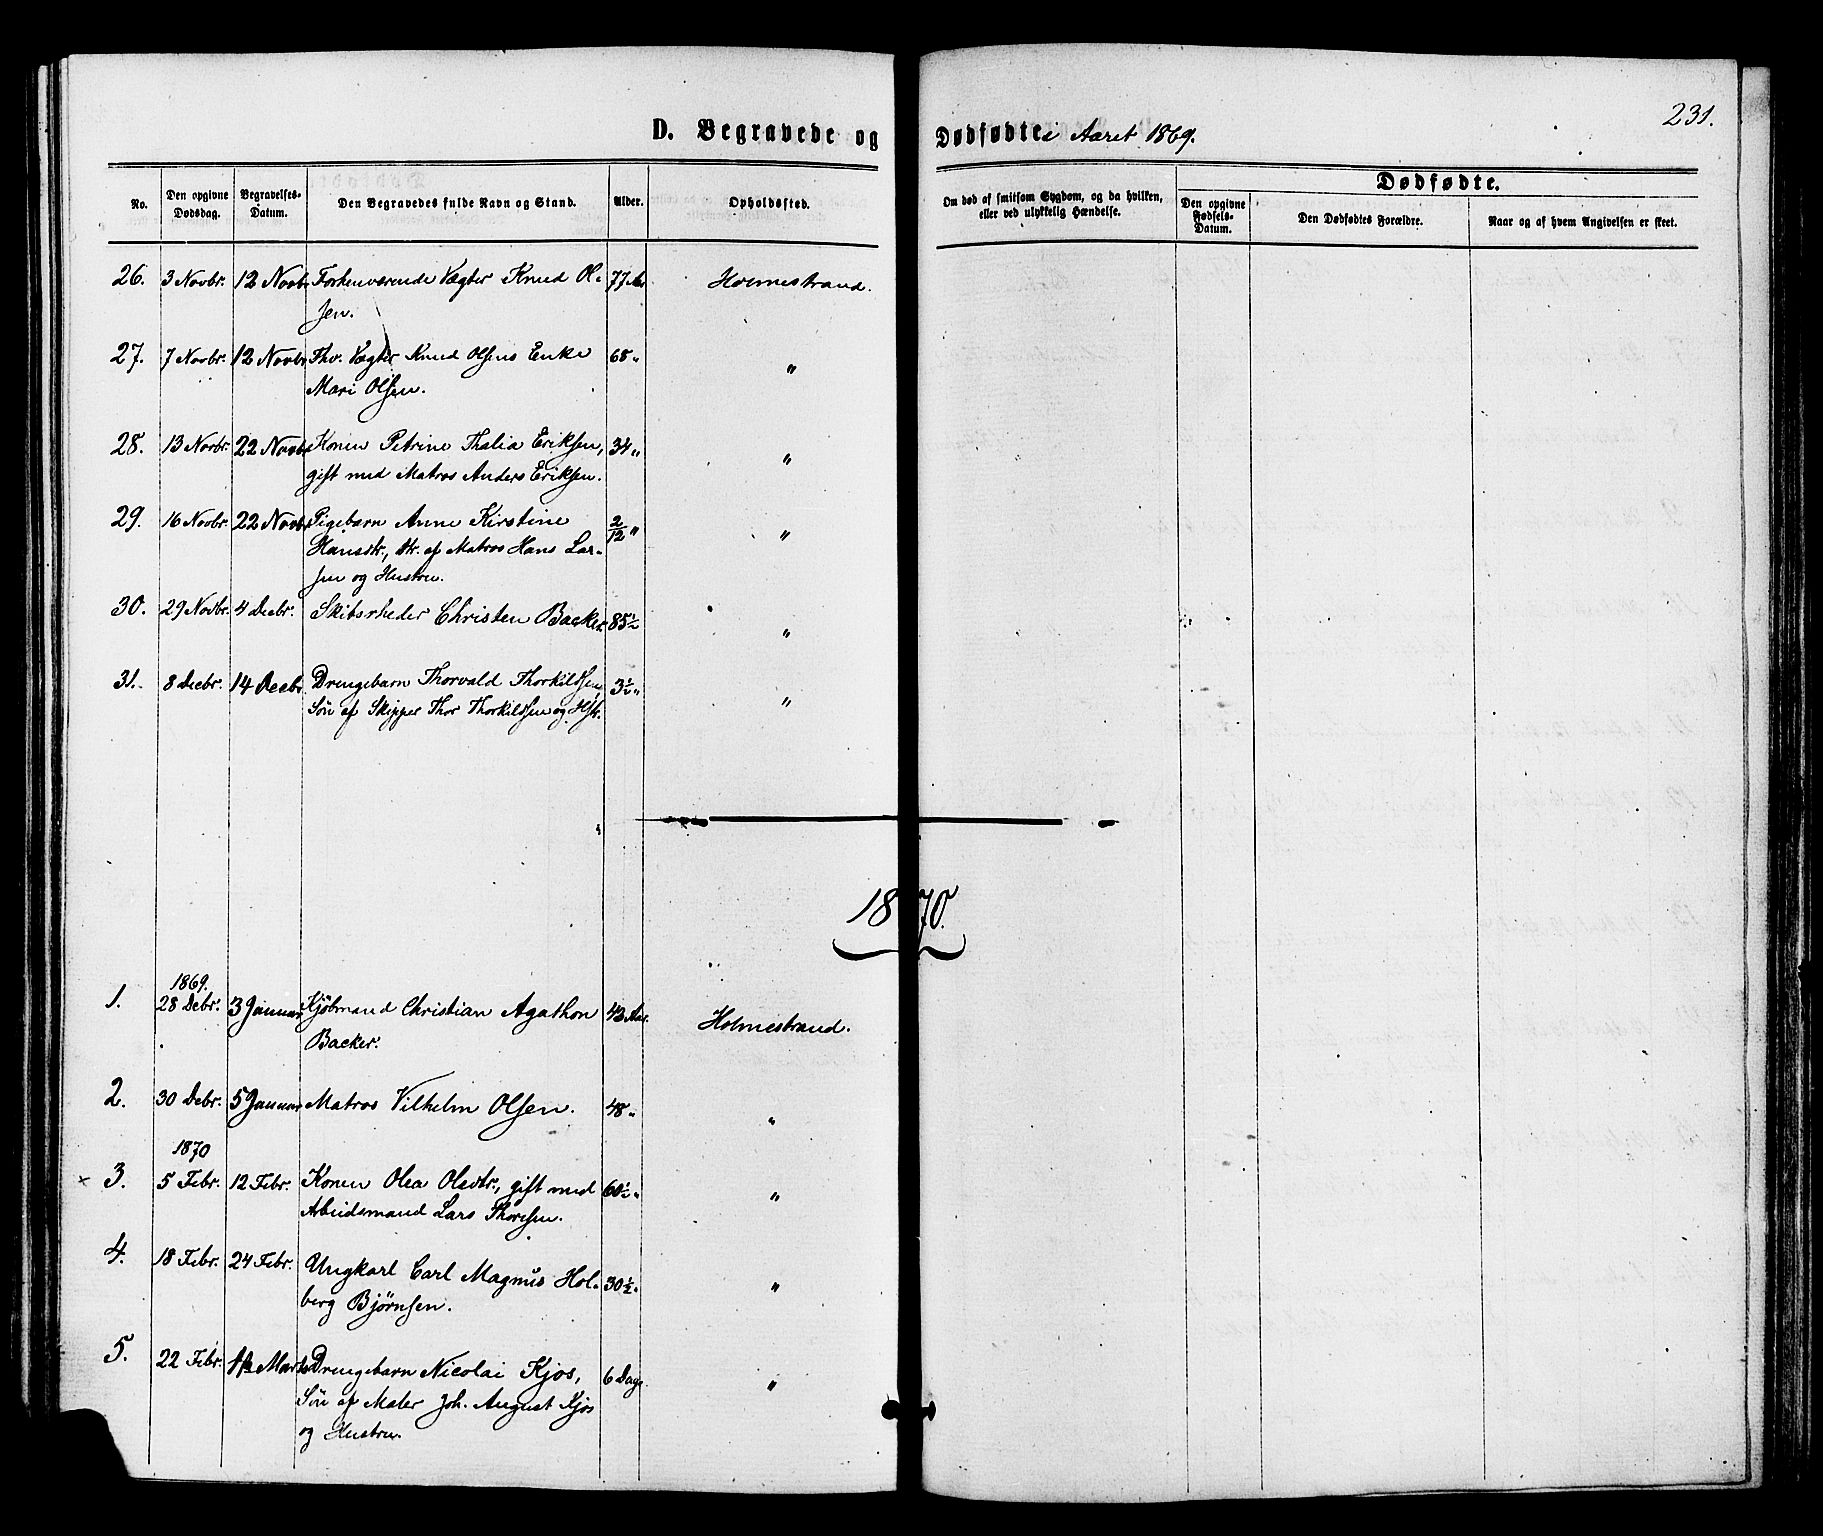 231.
D. Begravede og Dødfødte i Aaret 1869.
No.
Den opgivne Dødsdag.
Begravelses-Datum.
Den Begravedes fulde Navn og Stand.
Alder.
Opholdssted.
Om død af smitsom Sygdom, og da hvilken, eller ved ulykkelig Hændelse.
Dødfødte.
Den opgivne Fødsels-Datum.
Den Dødfødtes Forældre.
Naar og af hvem Angivelsen er skeet.
26. 3 Novbr. 12 Novbr Forhenværende Vægter Knud Ol- 77 Aar Holmestrand.
sen.
27. 7 Novbr. 12 Novbr Fhv. Vægter Knud Olsens Enke 68 " "
Mari Olsen.
28. 13 Novbr. 22 Novbr Konen Petrine Thalia Eriksen, 34 " "
gift med Matros Anders Eriksen.
29. 16 Novbr. 22 Novbr Pigebarn Anne Kirstine 2/12 " "
Hansdtr., Dtr. af Matros Hans Lar-
sen og Hustru.
30. 29 Novbr. 4 Decbr. Skibsrheder Christen Backer 85½ "
31. 8 Decbr. 14 Decbr Drengebarn Thorvald Thorkildsen, 3½ " "
Søn af Skipper Thor Thorkildsen og Hstr.
1870.
1869.
1. 28 Debr. 3 Januar Kjøbmand Christian Agathon 43 Aar. Holmestrand.
Backer.
2. 30 Debr. 5 Januar Matros Vilhelm Olsen. 48 " "
1870
× 3. 5 Febr. 12 Febr. Konen Olea Olsdtr., gift med 60½ " "
Arbeidsmand Lars Thoresen.
4. 18 Febr. 24 Febr. Ungkarl Carl Magnus Hol- 30½ " "
berg Bjørnsen.
5. 22 Febr. Marts Drengebarn Nicolai Kjos, 6 Dage "
Søn af Maler Joh. August Kjos
og Hustru.